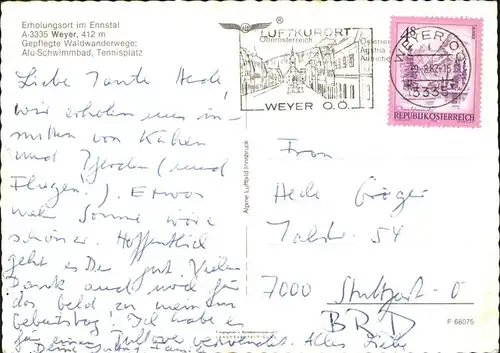 Erholungsort im Ennstal
A-3335 Weyer, 412 m
Gepflegte Waldwanderwege;
Alu-Schwimmbad, Tennisplatz
Liebe Tante Hede,
wir erholen uns in-
mitten von Kühen
und Pferden (und
Fliegen!). Etwas
mehr Sonne wäre
schöner. Hoffentlich
geht es Dir gut. Vielen
Dank auch noch für
das Geld zu meinem
Geburtstag. Ich habe es
für einen Pullover verwendet. Alles Liebe
Deine
Alpine Luftbild Innsbruck
®
LUFTKURORT
Oberösterreich
WEYER O.Ö.
WEYER O.Ö.
3335
REPUBLIK ÖSTERREICH
Frau
Hede
Talstr. 54
7000 Stuttgart-O
BRD
F 68075